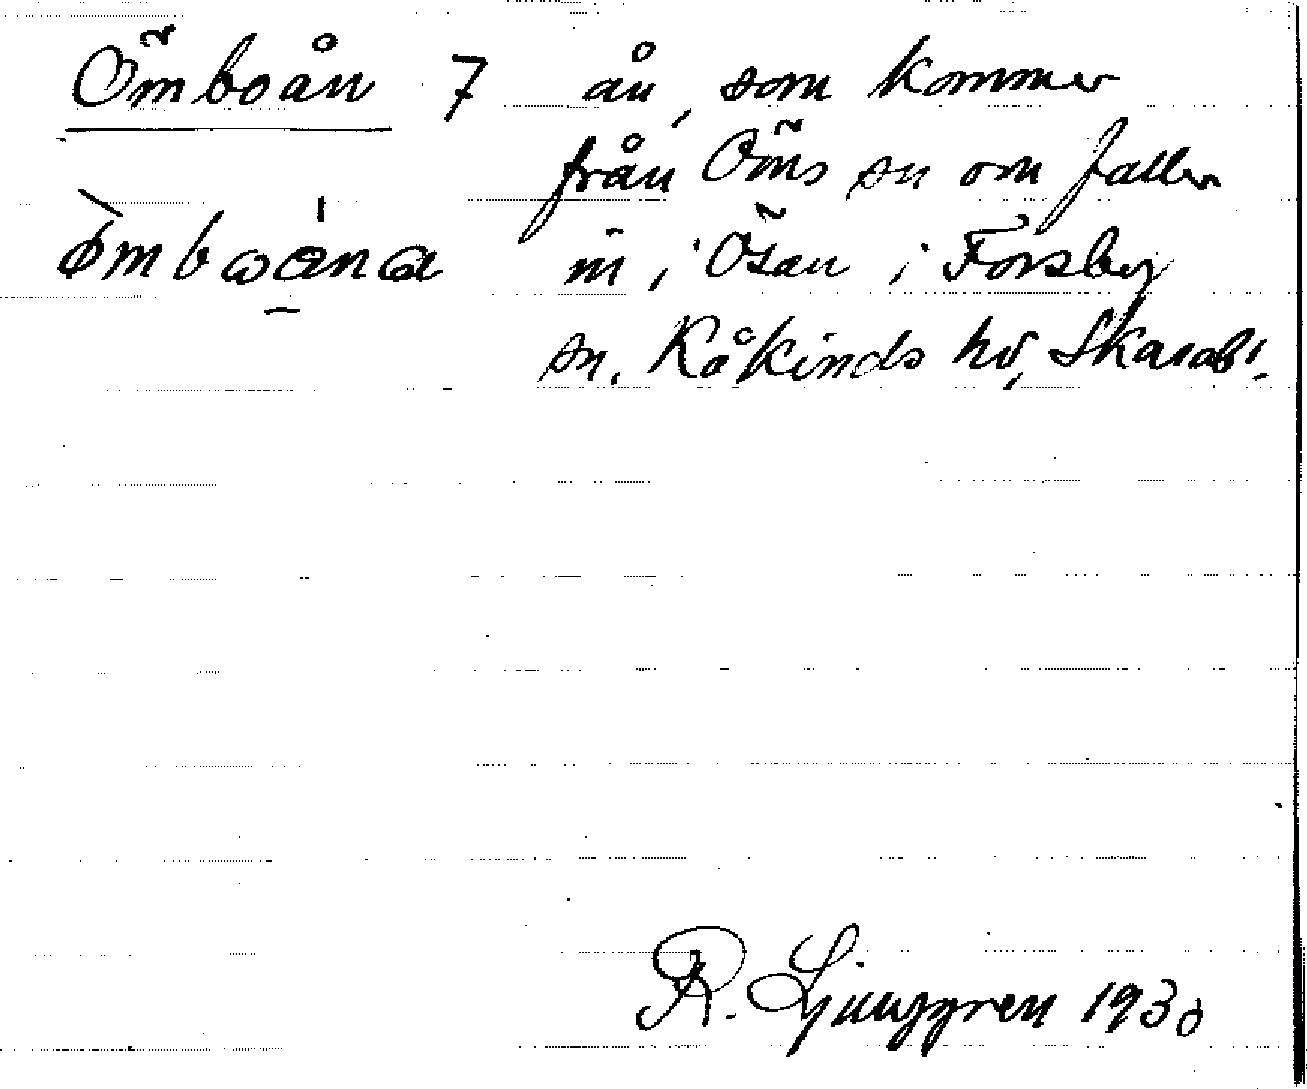 Ömboån 7 å, som kommer
från Öms sn om faller
òmbωαna in i Ösan i Forsby
sn. Kåkinds hd, Skarab.
R. Ljunggren 1930